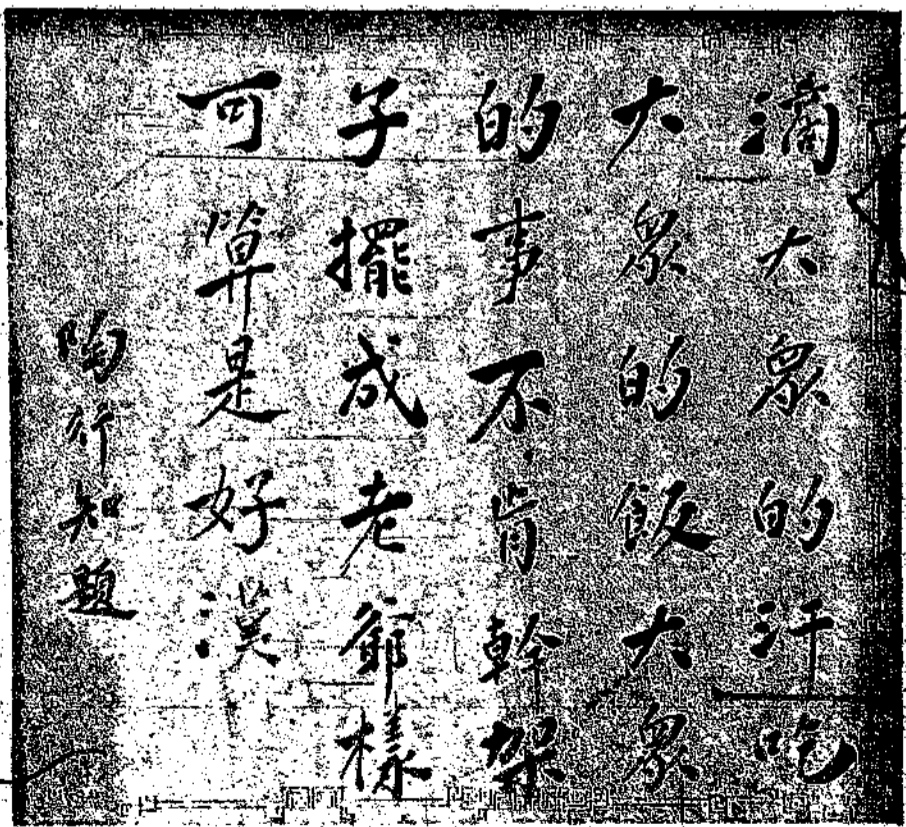 滴大眾的汗吃
大眾的飯大眾
的事不肯幹架
子擺成老爺樣
可算是好漢
陶行知題